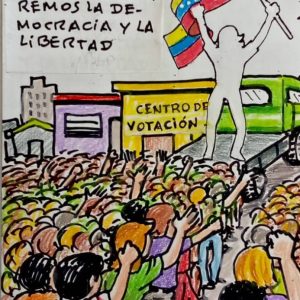 REMOS LA DE-
MOCRACIA Y LA
LIBERTAD
CENTRO DE
VOTACIÓN